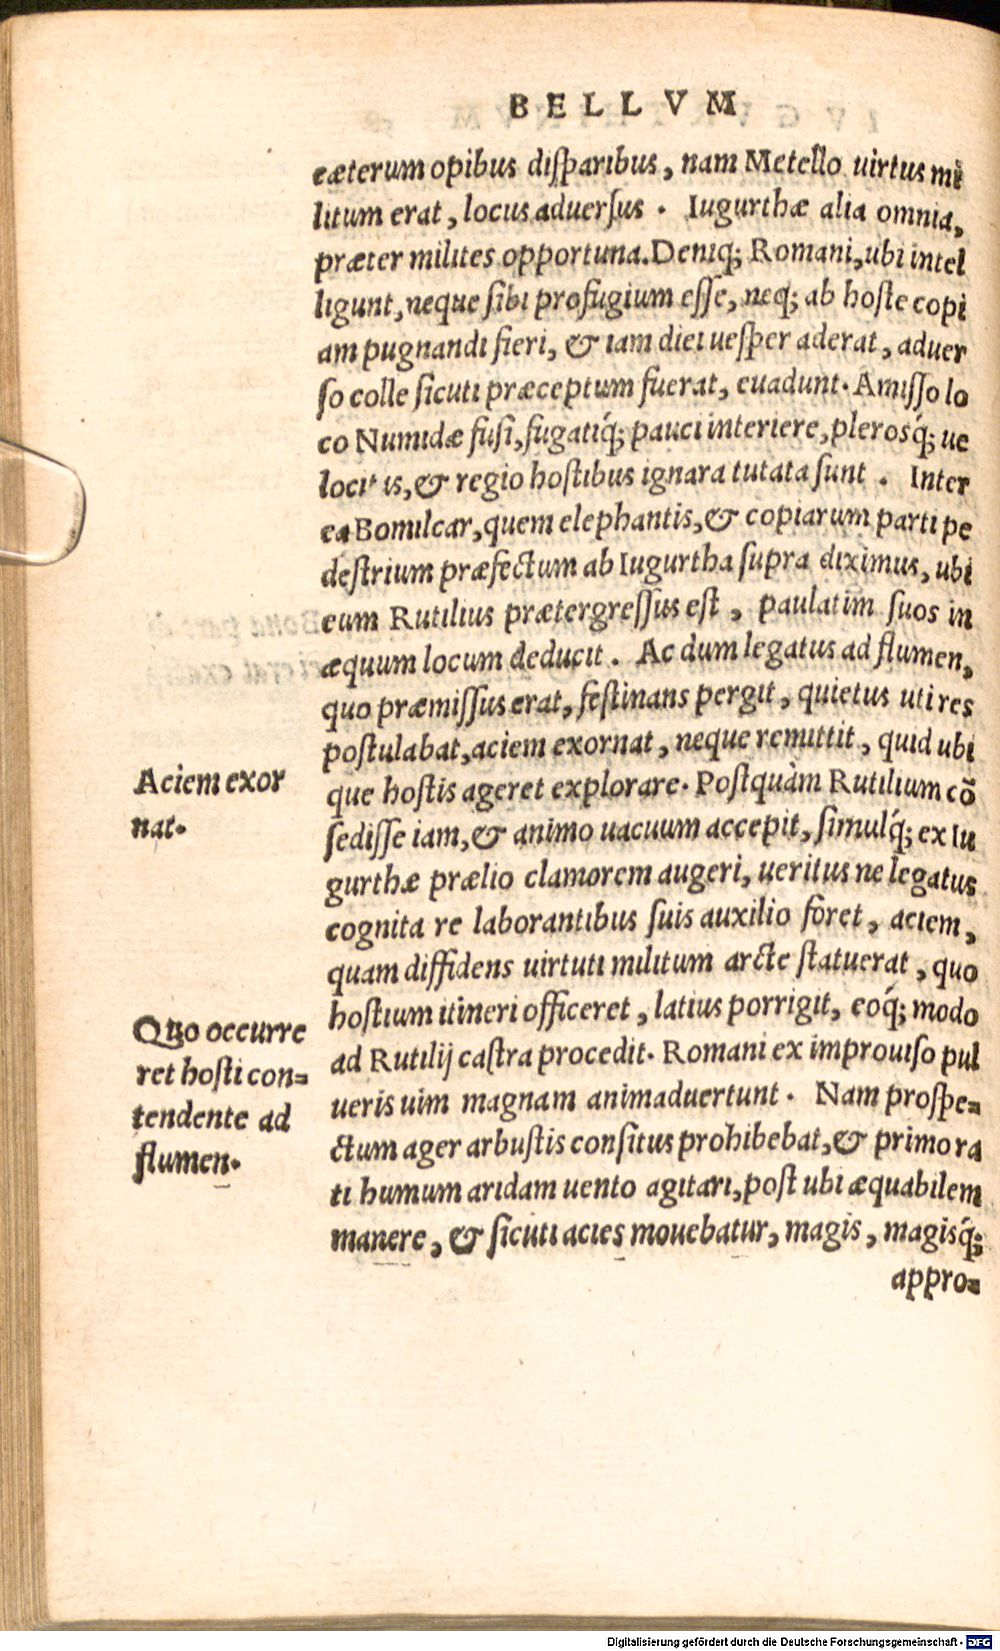 BELLVM
cæterum opibus diſparibus, nam Metello uirtus mi
litum erat, locus aduerſus. Iugurthæ alia omnia,
præter milites opportuna. Deniq; Romani, ubi intel
ligunt, neque ſibi profugium eſſe, neq; ab hoſte copi
am pugnandi fieri, & iam diei ueſper aderat, aduer
ſo colle ſicuti præceptum fuerat, euadunt. Amiſſo lo
co Numidæ fuſi, fugatiq́; pauci interiere, pleroſq́; ue
locitas, & regio hoſtibus ignara tutata ſunt. Inter
ea Bomilcar, quem elephantis, & copiarum parti pe
deſtrium præfectum ab Iugurtha ſupra diximus, ubi
eum Rutilius prætergreſſus eſt, paulatim ſuos in
æquum locum deducit. Ac dum legatus ad flumen,
quo præmiſſus erat, feſtinans pergit, quietus uti res
poſtulabat, aciem exornat, neque remittit, quid ubi
Aciem exor
nat.
que hoſtis ageret explorare. Poſtquàm Rutilium cō
ſediſſe iam, & animo uacuum accepit, ſimulq́; ex Iu
gurthæ prælio clamorem augeri, ueritus ne legatus
cognita re laborantibus ſuis auxilio foret, aciem,
quam diffidens uirtuti militum arcte ſtatuerat, quo
Quo occurre
ret hoſti con-
tendente ad
flumen.
hoſtium itineri officeret, latius porrigit, eoq́; modo
ad Rutilij caſtra procedit. Romani ex improuiſo pul
ueris uim magnam animaduertunt. Nam proſpe-
ctum ager arbuſtis conſitus prohibebat, & primo ra
ti humum aridam uento agitari, poſt ubi æquabilem
manere, & ſicuti acies mouebatur, magis, magiſq́;
appro-
Digitalisierung gefördert durch die Deutsche Forschungsgemeinschaft - DFG